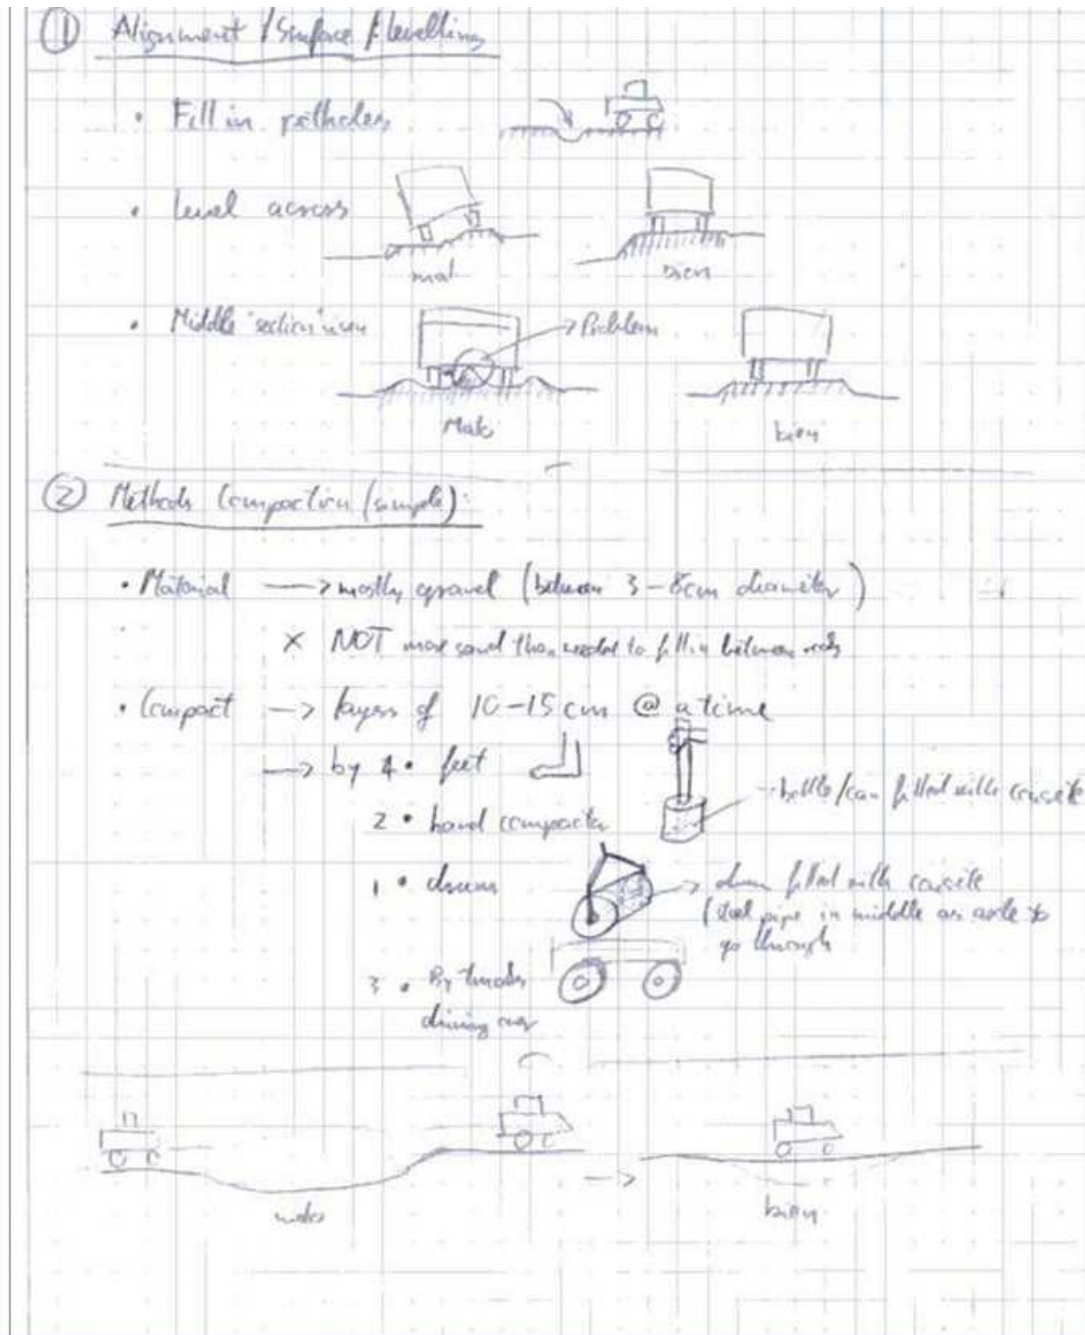 ① Alignment / Surface / levelling
• Fill in potholes
• level across
mal
bien
• Middle section
→ Problem
Malo
bien
② Methods Compaction (simple):
• Material → mostly gravel (between 3-8cm diameter)
X NOT more sand than needed to fill in between
• Compact → layers of 10-15 cm @ a time
→ by 4 • feet
2 • hand compactor
→ bottle/can filled with concrete
1 • drum
→ drum filled with concrete
(steel pipe in middle as axle to
go through
3 • By trucks
driving over
malo
→
bien